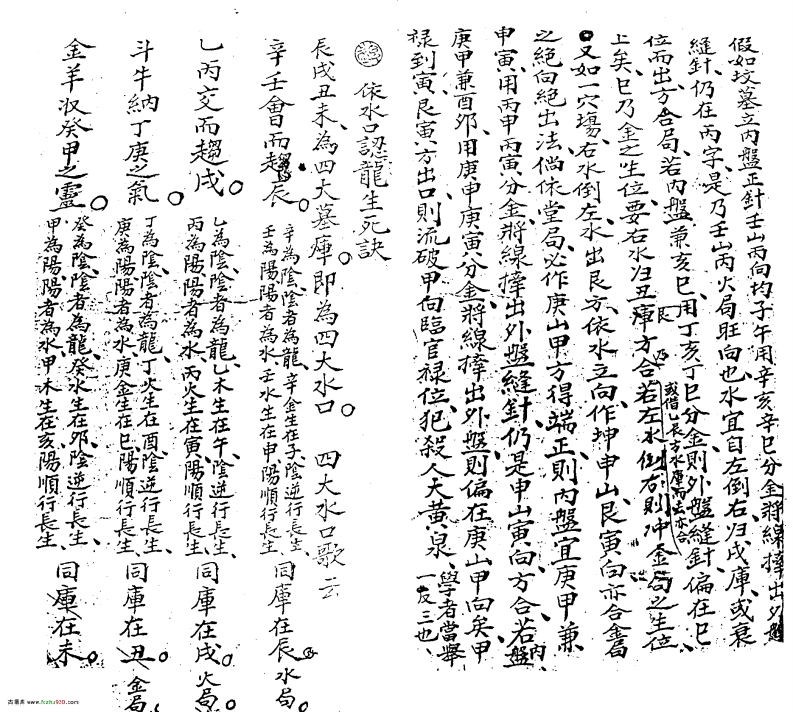 假如坟墓立内盤正針壬山丙向均子午用辛亥辛巳分金將線撑出外盤
縫針仍在丙字是乃壬山丙火局旺向也水宜自左倒右归戌庫或衰
位而出方合局若内盤兼亥巳用丁亥丁巳分金則外盤縫針偏在巳
上矣巳乃金之生位要右水归丑庫方合若左水倒右則冲金局之生位
艮乃
或借乙辰方水庫而去亦合
又如一穴塲右水倒左水出艮方依水立向作坤申山艮寅向亦合局
之絕向絕出法倘休堂局必作庚山甲方得端正則内盤宜庚甲兼
申寅用丙申丙寅分金將線撑出外盤縫針仍是申山寅向方合若内盤
庚甲兼酉夘用庚申庚寅分金將線撑出外盤則偏在庚山甲向矣甲
禄到寅艮寅方出口則流破甲向臨官禄位犯殺人大黄泉學者當舉
一反三也
依水口認龍生死訣
辰戌丑未為四大墓庫即為四大水口 四大水口歌云
辛壬會而趨辰 辛為陰陰者為龍辛金生在子陰逆行長生 同庫在辰水局
壬為陽陽者為水壬水生在申陽順行長生
乙丙交而趨戌 乙為陰陰者為龍乙木生在午陰逆行長生 同庫在戌火局
丙為陽陽者為水丙火生在寅陽順行長生
斗牛納丁庚之氣 丁為陰陰者為龍丁火生在酉陰逆行長生 同庫在丑金局
庚為陽陽者為水庚金生在巳陽順行長生
金羊收癸甲之靈 癸為陰陰者為龍癸水生在夘陰逆行長生 同庫在未
甲為陽陽者為水甲木生在亥陽順行長生
古易库 www.fozhu920.com